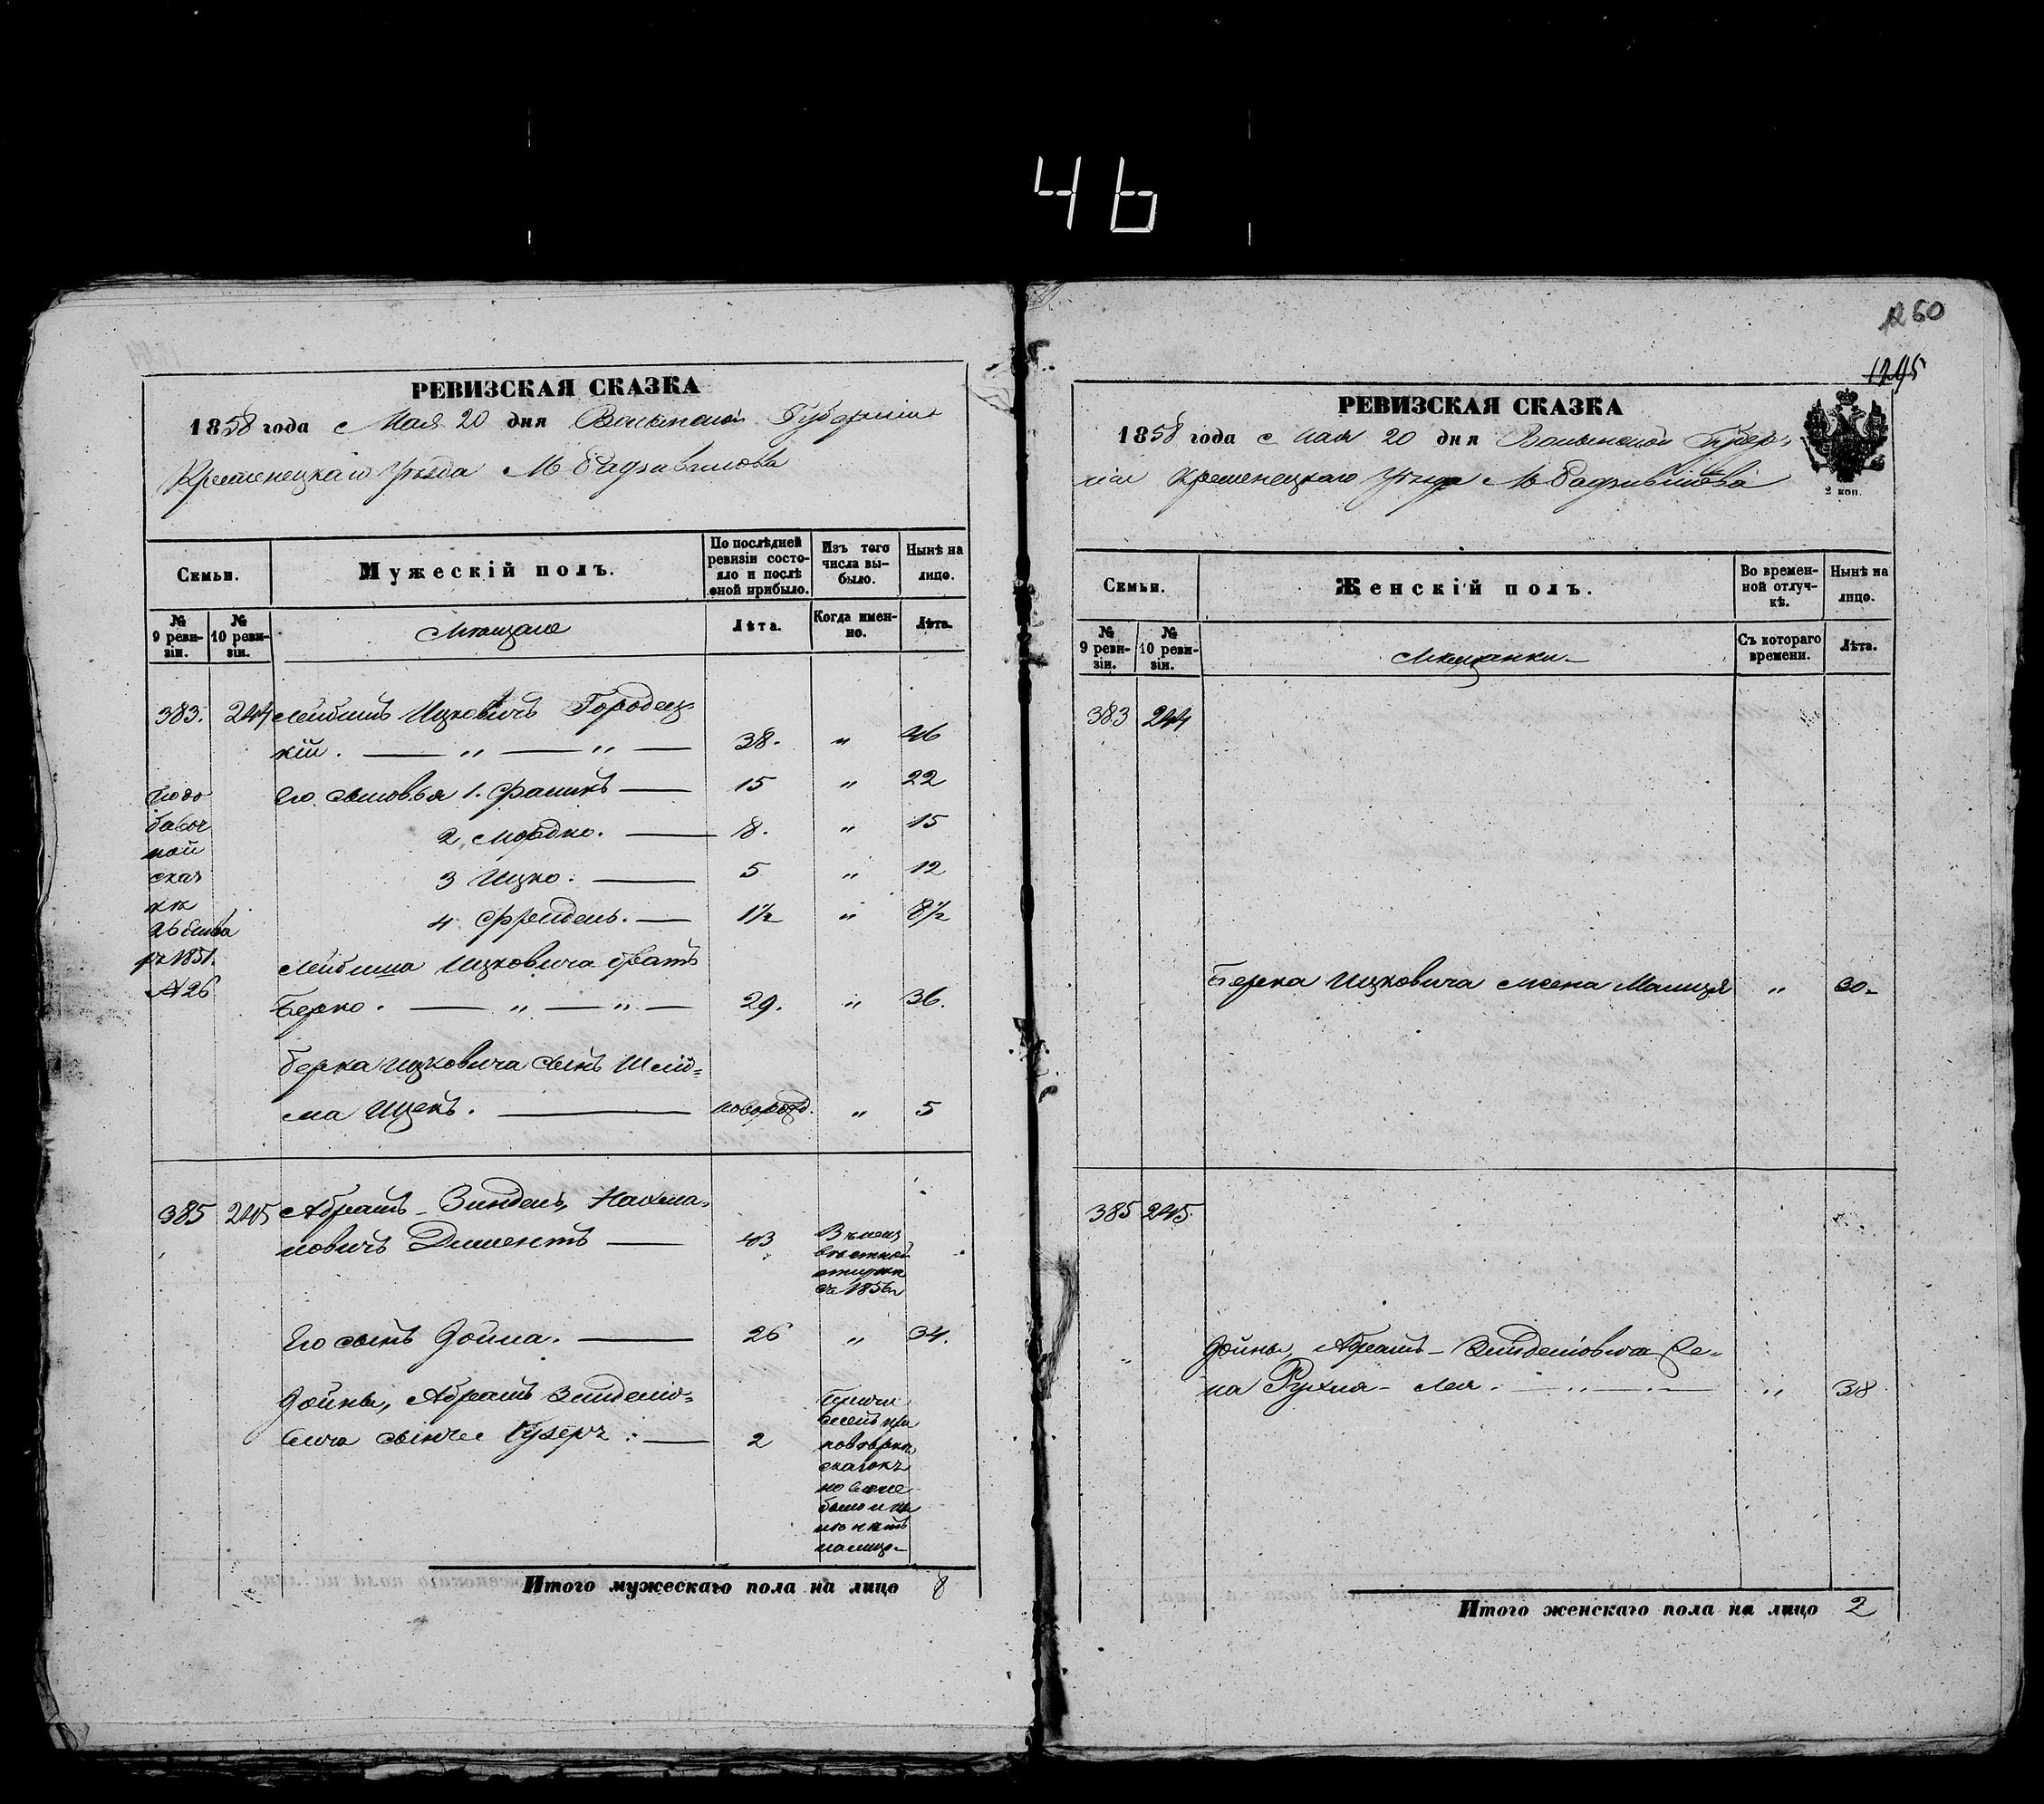 46
РЕВИЗСКАЯ СКАЗКА
1858 года Мая 20 дня Волынской Губернии
Кременецкаго Уѣзда М Радзивилова
Семьи.
Мужескій полъ.
По послѣдней ревизіи состояло и послѣ оной прибыло.
Изъ того числа выбыло.
Нынѣ на лицо.
№ 9 ревизіи.
№ 10 ревизіи.
Мѣщане
Лѣта.
Когда именно.
Лѣта.
383. 244 Лейбишъ Ицковичъ Городец-
кій. — „ — „ — 38. „ 46
Его сыновья 1. Фроимъ — 15 „ 22
2. Мордко. — 8. „ 15
3 Ицко. — 5 „ 12
4 Фрейдель. — 1½ „ 8½
По до
бавоч
ной
сказ
кѣ
26
1851.
№ 26
Лейбиша Ицковича братъ
Берко. — „ — „ — 29. „ 36.
Берка Ицковича сынъ Шлио-
ма Ицекъ. — новорожд. „ 5
385 245 Абрамъ-Зиндель Нахма-
новичъ Диментъ — 43
Въ неиз
вѣстной
отлучкѣ
съ 1856
Его сынъ Іойна. — 26 „ 34.
Іойны, Абрамъ Зинделіо-
вича сынъ Гузеръ. — 2
при
повѣркѣ
сказокъ
но
было и
нѣтъ
налицо
Итого мужескаго пола на лицо 8
1260
1245
РЕВИЗСКАЯ СКАЗКА
1858 года мая 20 дня Волынской Губер-
ніи Кременецкаго Уѣзда М Радзивилова
2 коп.
Семьи.
Женскій полъ.
Во временной отлучкѣ.
Нынѣ на лицо.
№ 9 ревизіи.
№ 10 ревизіи.
Мѣщанки
Съ котораго времени.
Лѣта.
383 244
Берка Ицковича жена Малиця „ 30
385 245
„ Іойны, Абрамъ-Зинделіовича же-
на Рухля-Лея. — „ — „ 38
Итого женскаго пола на лицо 2